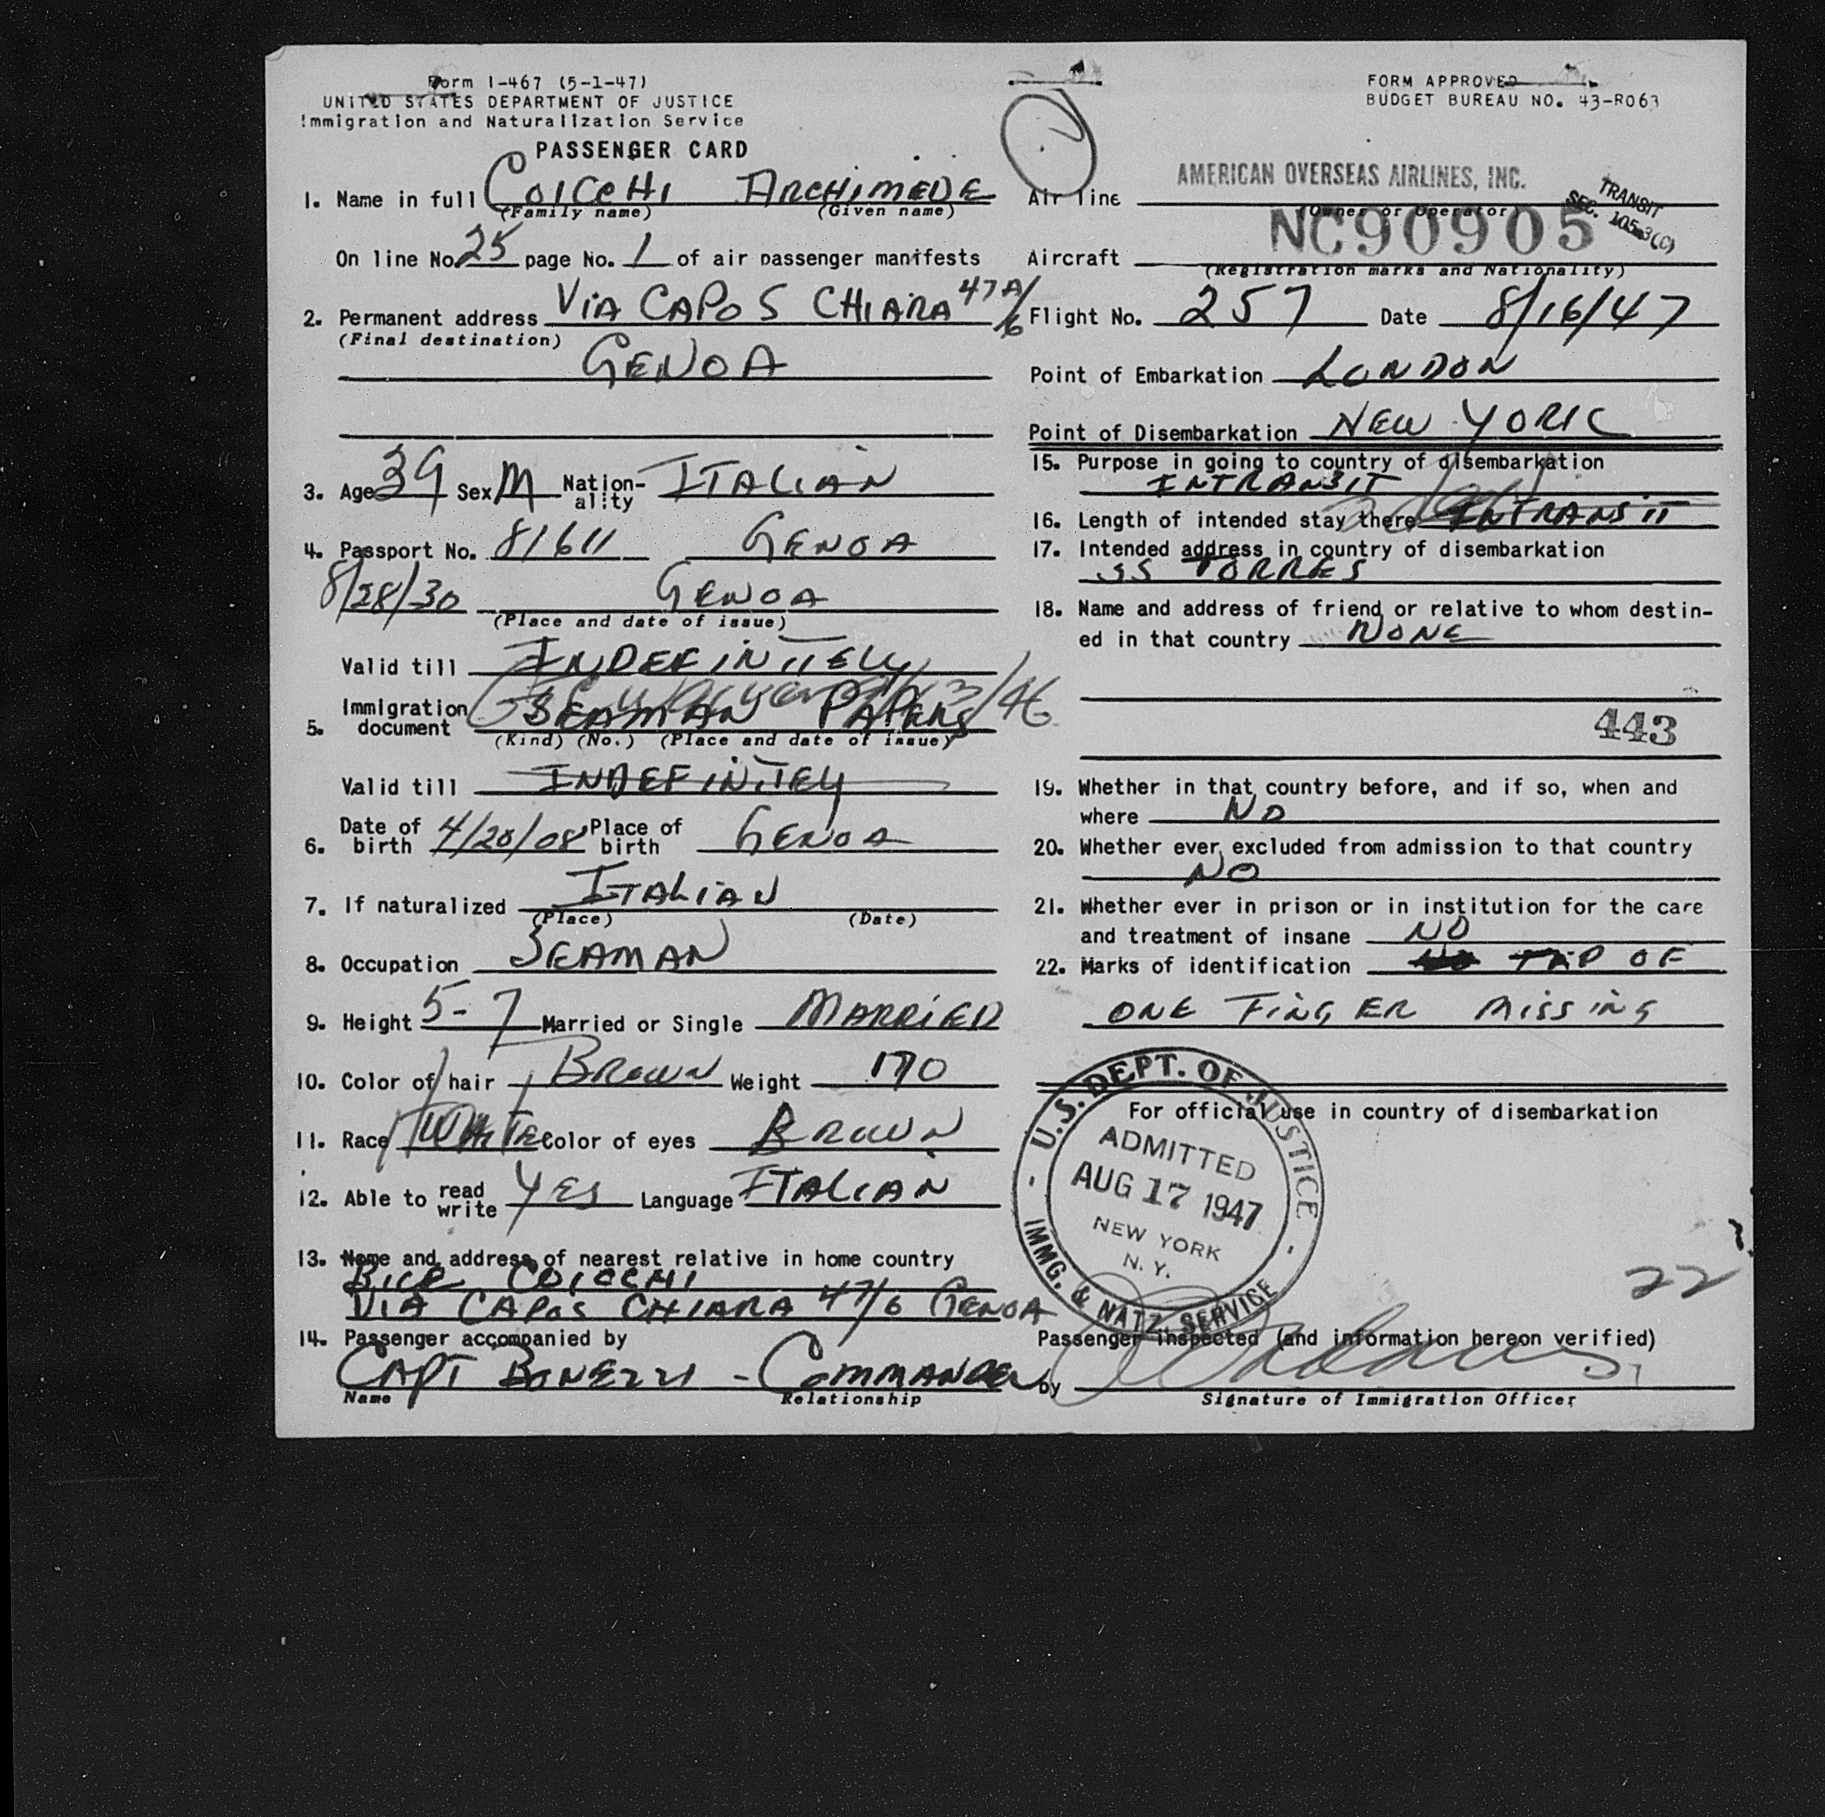 Form I-467 (5-1-47)
UNITED STATES DEPARTMENT OF JUSTICE
Immigration and Naturalization Service
PASSENGER CARD
1. Name in full COICCHI ARCHIMEDE
(Family name) (Given name)
On line No. 25 page No. 1 of air passenger manifests
2. Permanent address VIA CAPO S CHIARA 47A/6
(Final destination)
GENOA
3. Age 39 Sex M Nation-ality ITALIAN
4. Passport No. 81611 GENOA
8/28/30 GENOA
(Place and date of issue)
Valid till INDEFINITELY
5. Immigration document SEAMAN PAPERS
(Kind) (No.) (Place and date of issue)
Valid till INDEFINITELY
6. Date of birth 4/20/08 Place of birth GENOA
7. If naturalized ITALIAN
(Place) (Date)
8. Occupation SEAMAN
9. Height 5-7 Married or Single MARRIED
10. Color of hair BROWN Weight 170
11. Race WHITE Color of eyes BROWN
12. Able to read write YES Language ITALIAN
13. Name and address of nearest relative in home country
BICE COICCHI
VIA CAPO S CHIARA 47/6 GENOA
14. Passenger accompanied by
CAPT BONEZZI - COMMANDER
Name Relationship
FORM APPROVED
BUDGET BUREAU NO. 43-R063
AMERICAN OVERSEAS AIRLINES, INC.
Air line
(Owner or Operator)
TRANSIT
SEC. 105.3(C)
Aircraft NC90905
(Registration marks and Nationality)
Flight No. 257 Date 8/16/47
Point of Embarkation LONDON
Point of Disembarkation NEW YORK
15. Purpose in going to country of disembarkation
INTRANSIT
16. Length of intended stay there INTRANSIT
17. Intended address in country of disembarkation
SS TORRES
18. Name and address of friend or relative to whom destin-
ed in that country NONE
443
19. Whether in that country before, and if so, when and
where NO
20. Whether ever excluded from admission to that country
NO
21. Whether ever in prison or in institution for the care
and treatment of insane NO
22. Marks of identification TIP OF
ONE FINGER MISSING
For official use in country of disembarkation
U.S. DEPT. OF JUSTICE
ADMITTED
AUG 17 1947
NEW YORK
N.Y.
IMMG. & NATZ. SERVICE
22
Passenger inspected (and information hereon verified)
by
Signature of Immigration Officer